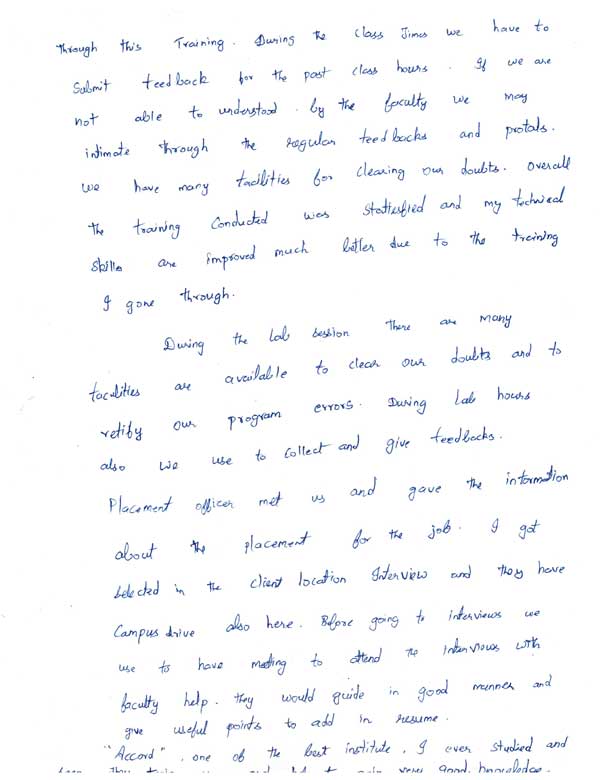 through this Training. During the class Times we have to
Submit feedback for the past class hours. If we are
not able to understood. by the faculty we may
intimate through the regular feedbacks and protals.
we have many facilities for clearing our doubts. Overall
the training Conducted was Statiesfied and my technical
skills are improved much better due to the treining
I gone through.
During the Lab session there are many
facilities are available to clear our doubts and to
retify our program errors. During Lab hours
also we use to Collect and give feedbacks.
Placement officer met us and gave the information
about the placement for the job. I got
selected in the client location Interview and they have
Campus drive also here. Before going to interviews we
use to have meeting to attend the interviews with
faculty help. they would guide in good manner and
give useful points to add in resume.
"Accord", one of the best institute, I ever studied and
very good knowledge.